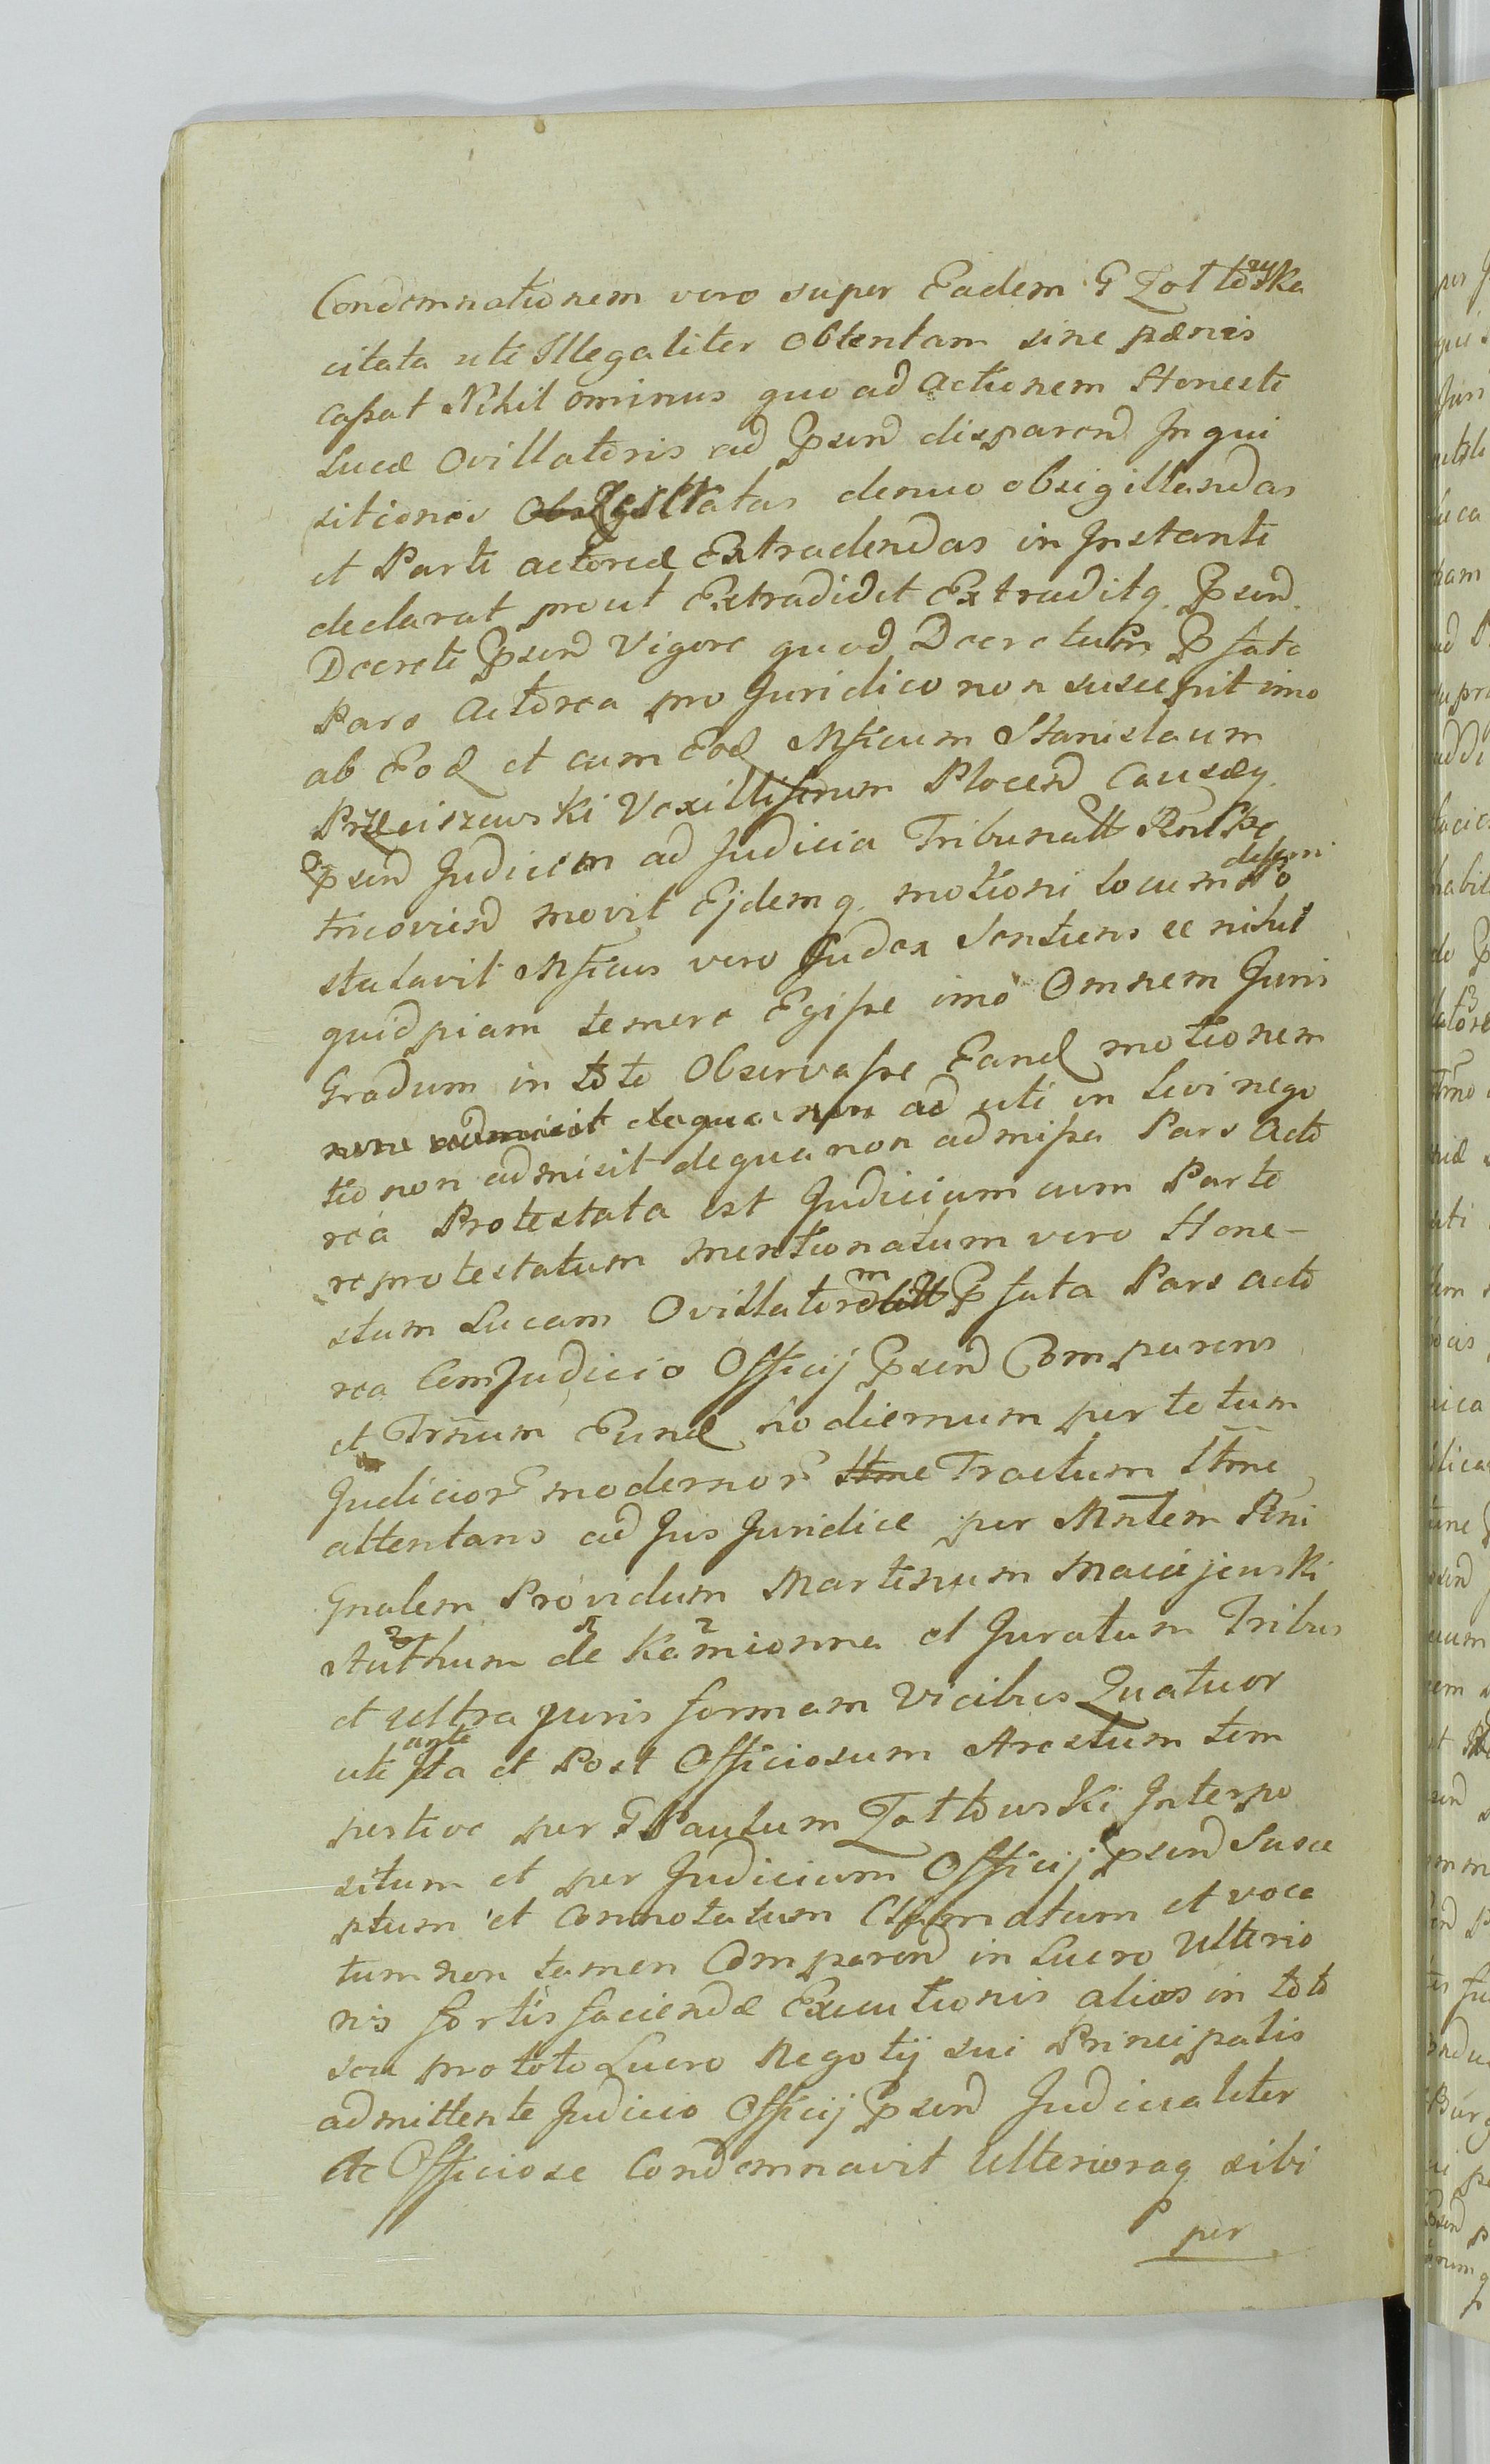 Condemnationem vero super Eadem G Zottowska
citata uti Illegaliter Obtentam sine pœnis
cassat Nihil ominus quo ad actionem Honesti
Lucæ Ovillatoris ad Ppsend disparend Inqui
sitiones tatas denuo obsigillandas
et Parti actoreæ Extradendas in Instanti
declarat prout Extradidit Extraditq. Ppsend.
Decreti Ppsend Vigore quod Decretum Ppfata
Pars Actorea pro Juridico non suscepit imo
ab Eod et cum Eod Mficum Stanislaum
Przeciszewski Vexilliferum Plocend Causæq.
Ppsend Judicem ad Judicia Tribunalt
tricoviend movit Ejdemq. motioni locum deferri po
stulavit Mficus vero Judex Sentiens se nihil
quidpiam temere Egisse imo Omnem Juris
Gradum in toto Observasse Eand motionem
non admisit dequa non ad uti in Levi nego
tio non admisit dequa non admissa Pars Acto
rea Protestata est Judicium cum Parte
reprotestatum mentionatum vero Hone-
stum Lucam Ovillatorem Ppfata Pars acto
rea Comjudicio Officij Ppsend Comparens
et Trnum Eund hodiernum per totum
Judicior modernor Tractum Sttme
attentans ad Jus Juridice per Mntem Rni
Gnalem Providum Martinum Maciejewski
Authum de Kamionna et Juratum Tribus
et ultra juris formam Vicibus Quatuor
uti ante et Post Officiosum Arestum tem
pestive per G Paulum Zottowski Interpo
situm et per Judicium Officij Ppsend Susce
ptum et Connotatum Clamatum et voca
tum non tamen Comparend in Lucro Ulterio
ris fortis faciendæ Executionis alias in toto
seu pro toto Lucro Negotij sui Principalis
admittente Judicio Officij Ppsend Judicialiter
Ac Officiose Condemnavit Ulterioraq sibi
per